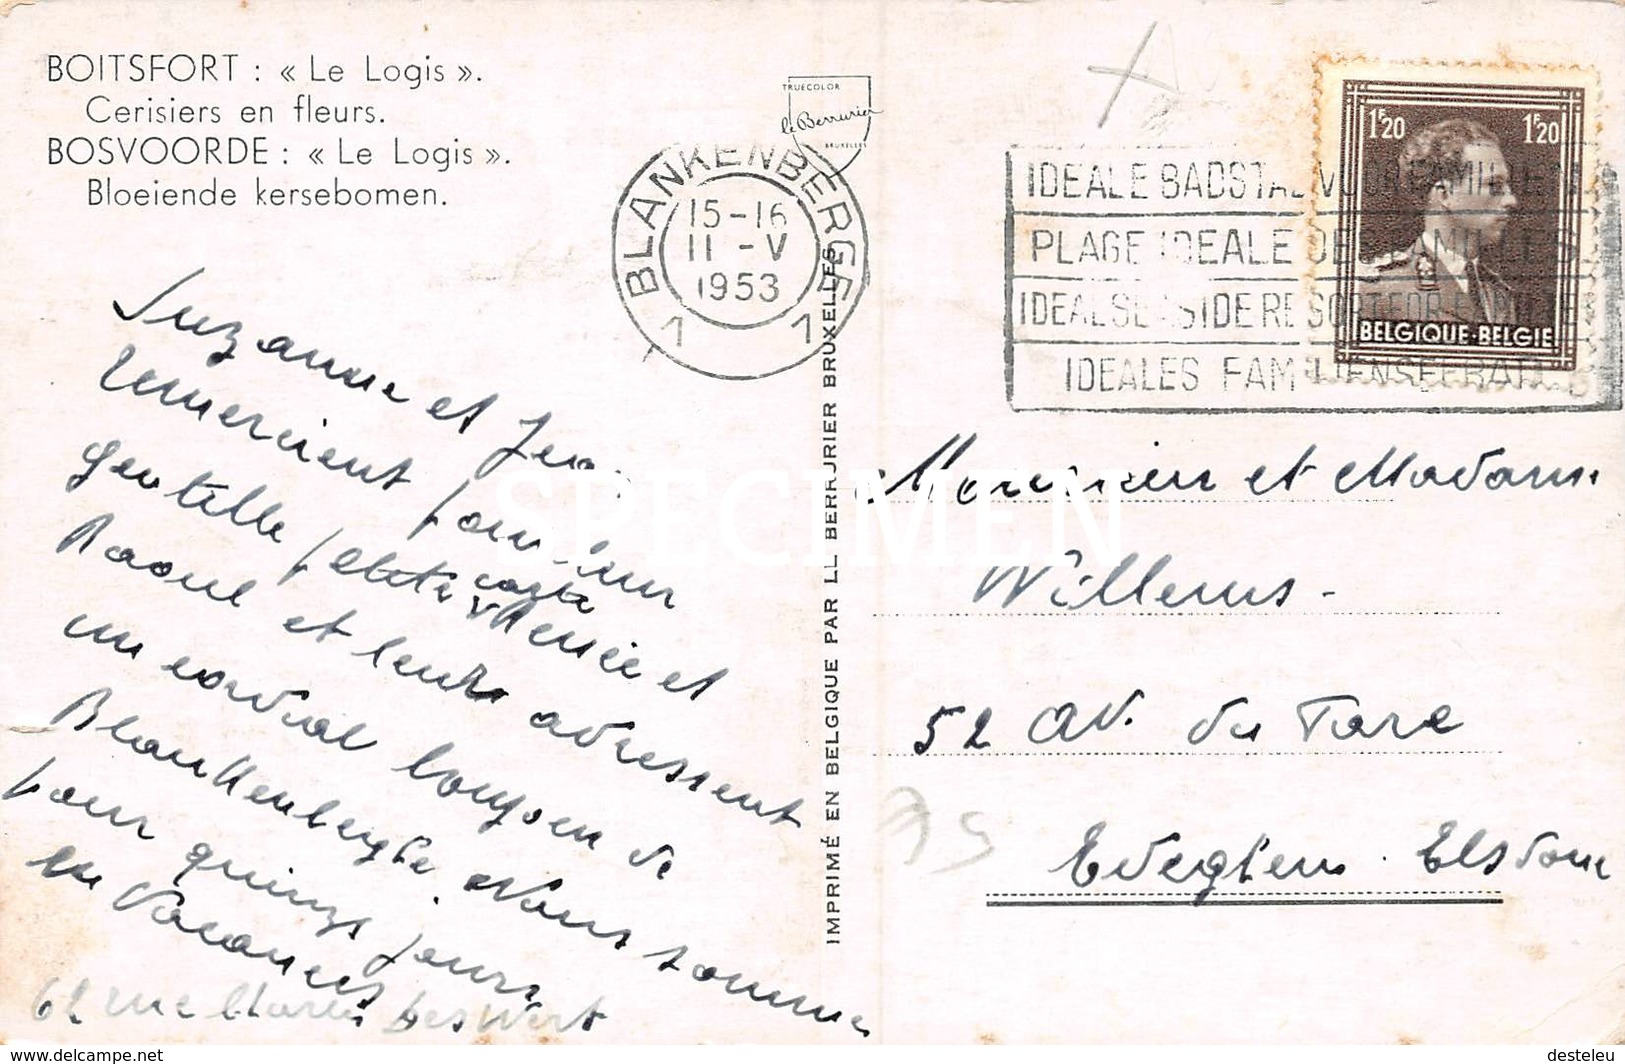 BOITSFORT : « Le Logis ».
Cerisiers en fleurs.
BOSVOORDE : « Le Logis ».
Bloeiende kersebomen.
TRUECOLOR
le Berrurier
BRUXELLES
BLANKENBERGE
15-16
11 -V
1953
1 1
IDEALE BADSTAD VOOR FAMILIES
PLAGE IDEALE DES FAMILLES
IDEAL SEASIDE RESORT FOR
IDEALES FAMILIENSEEBAD
1F20 1F20
BELGIQUE-BELGIE
Suzanne et
remercient pour leur
gentille petite carte Renée et
Raoul et leurs adressent
un cordial bonjour de
Blankenberghe. Nous sommes
pour quinze jours
en vacances
62 rue Charles Deswert
IMPRIMÉ EN BELGIQUE PAR LL BERRURIER BRUXELLES
Monsieur et Madame
Willems -
52 av. du Tare
Eveghem. Elsdonc
SPECIMEN
https://www.delcampe.net
desteleu